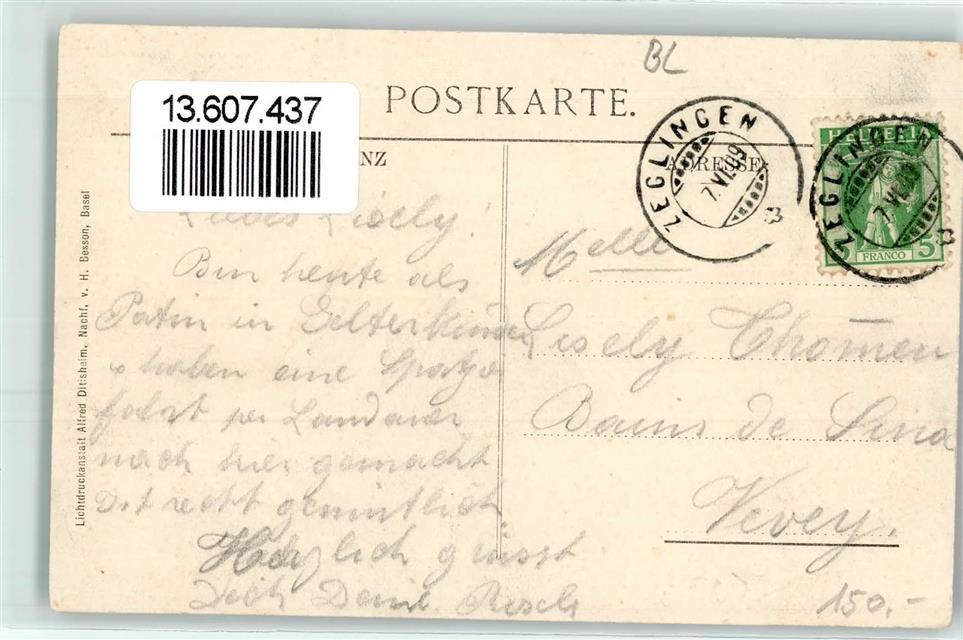 BL
13.607.437
POSTKARTE.
NZ
ADRESSE
ZEGLINGEN
7.VI.09
ZEGLINGEN
7.VI.
HELVETIA
5 FRANCO 5
Lichtdruckanstalt Alfred Ditisheim, Nachf. v. H. Besson, Basel
Liebes Lisely!
Bin heute als
Patin in Gelterkinden
& haben eine Spazier
fahrt per Landauer
nach hier gemacht
Ist recht gemütlich
Herzlich grüsst
Dich Deine
Melle
Lisely Thommen
Bains de
Vevey.
150.-